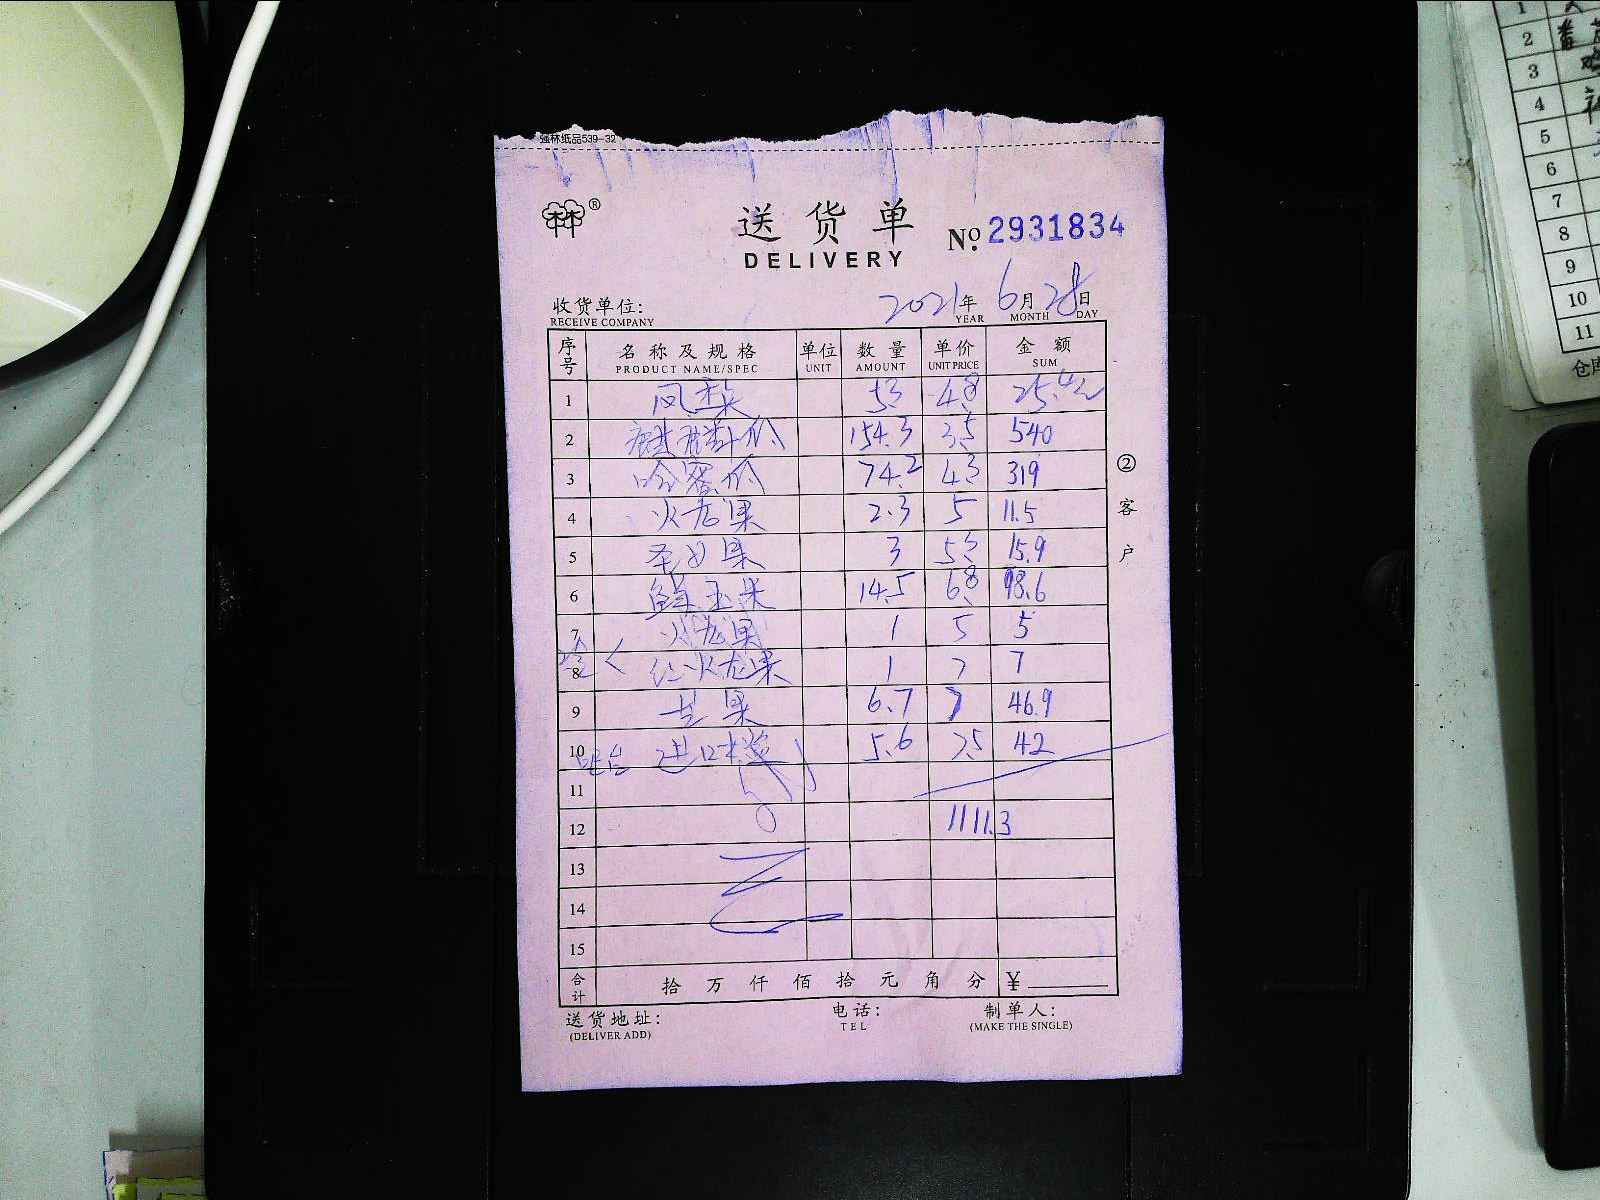 强林纸品539-32
林林®
送货单 No. 2931834
DELIVERY
收货单位: 2021年 6月 28日
RECEIVE COMPANY YEAR MONTH DAY
序号 名称及规格 单位 数量 单价 金额
PRODUCT NAME/SPEC UNIT AMOUNT UNIT PRICE SUM
1 凤梨 53 4.8
2 154.3 3.5 540
3 哈蜜瓜 74.2 4.3 319
4 火龙果 2.3 5 11.5
5 圣女果 3 5.3 15.9
6 14.5 6.8 98.6
7 火龙果 1 5 5
8 红火龙果 1 7 7
9 芒果 6.7 7 46.9
10 进口 5.6 7.5 42
11
12 1111.3
13
14
15
合计 拾 万 仟 佰 拾 元 角 分 ¥
②客户
送货地址: 电话: 制单人:
(DELIVER ADD) TEL (MAKE THE SINGLE)
1
2 番
3
4
5
6
7
8
9
10
11
仓库